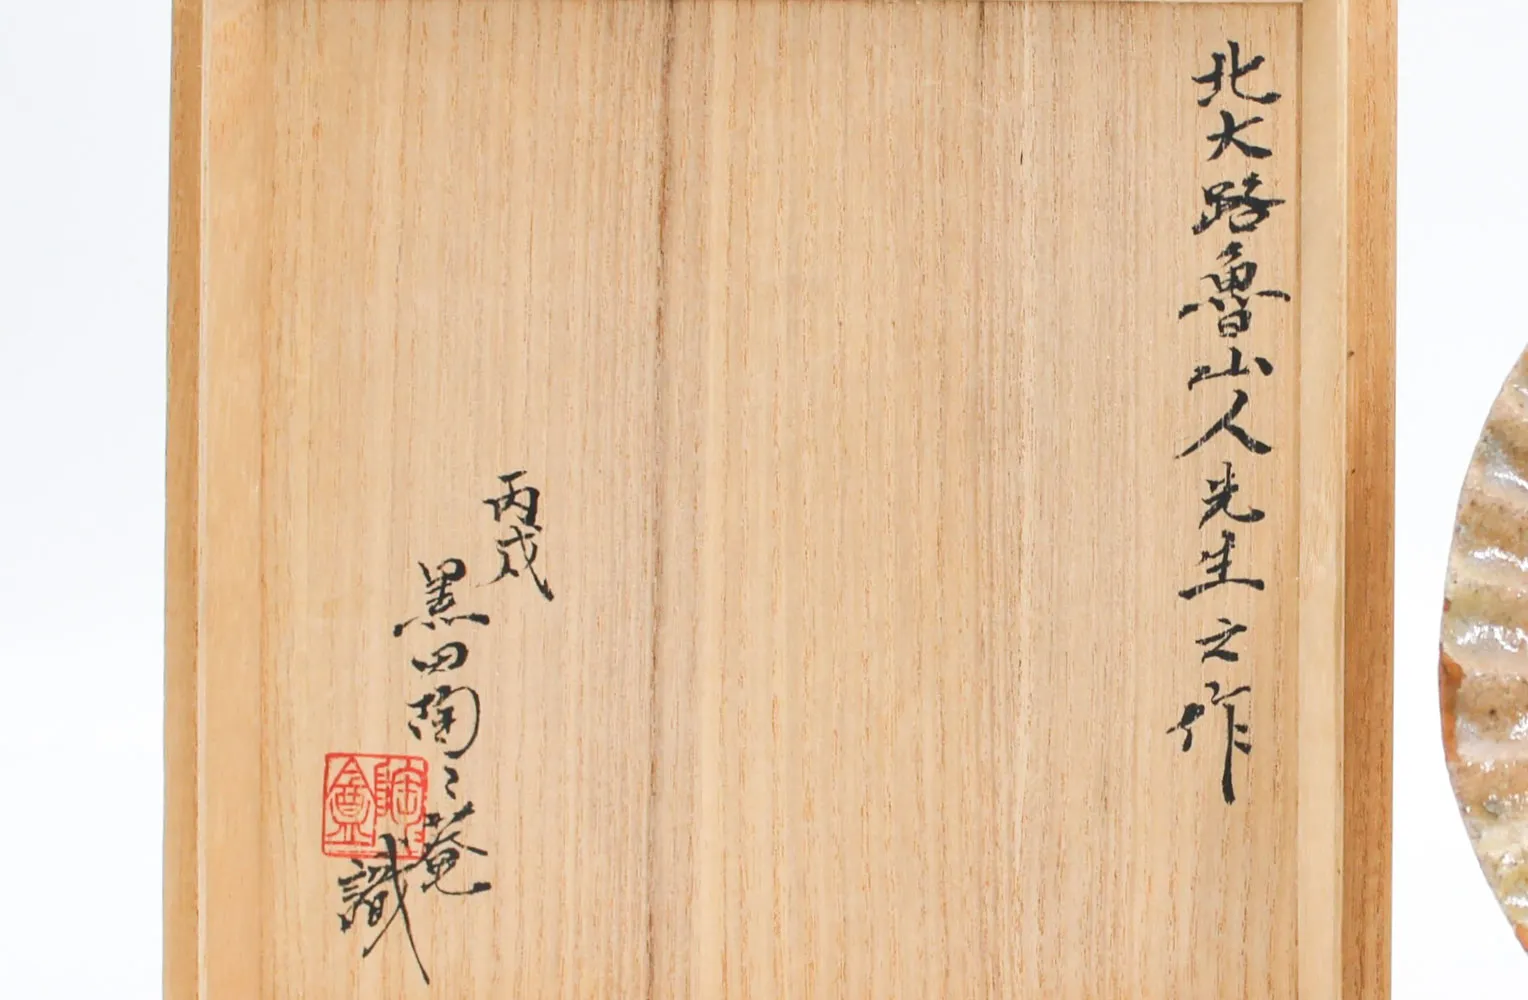 北大路魯山人先生之作
丙戌
黒田陶〻菴
識